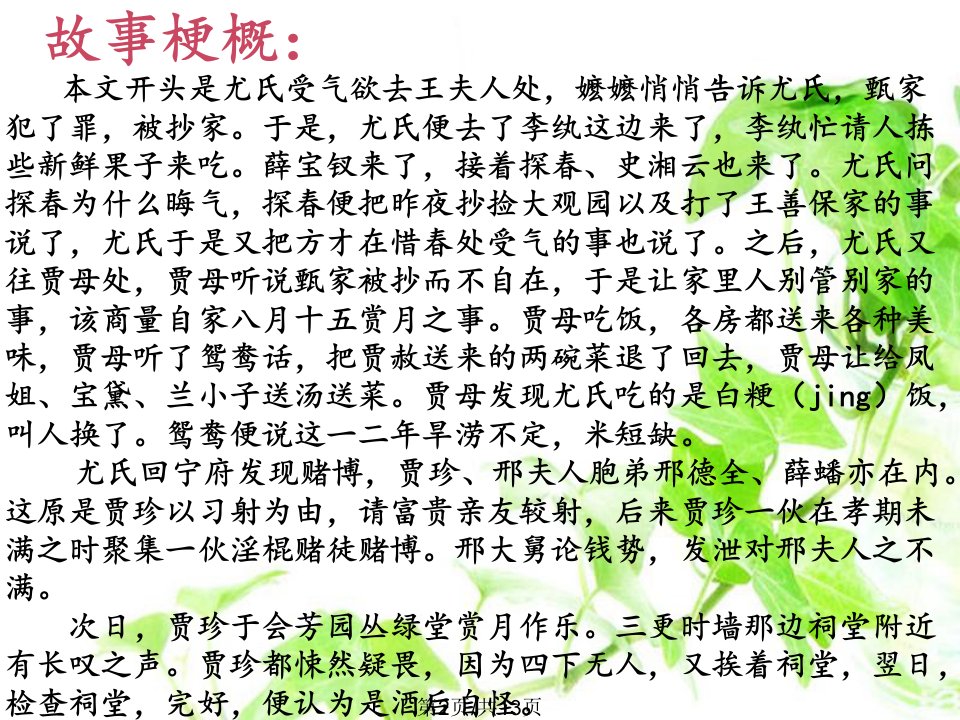 故事梗概：
本文开头是尤氏受气欲去王夫人处，嬷嬷悄悄告诉尤氏，甄家
犯了罪，被抄家。于是，尤氏便去了李纨这边来了，李纨忙请人拣
些新鲜果子来吃。薛宝钗来了，接着探春、史湘云也来了。尤氏问
探春为什么晦气，探春便把昨夜抄捡大观园以及打了王善保家的事
说了，尤氏于是又把方才在惜春处受气的事也说了。之后，尤氏又
往贾母处，贾母听说甄家被抄而不自在，于是让家里人别管别家的
事，该商量自家八月十五赏月之事。贾母吃饭，各房都送来各种美
味，贾母听了鸳鸯话，把贾赦送来的两碗菜退了回去，贾母让给凤
姐、宝黛、兰小子送汤送菜。贾母发现尤氏吃的是白粳（jing）饭，
叫人换了。鸳鸯便说这一二年旱涝不定，米短缺。
尤氏回宁府发现赌博，贾珍、邢夫人胞弟邢德全、薛蟠亦在内。
这原是贾珍以习射为由，请富贵亲友较射，后来贾珍一伙在孝期未
满之时聚集一伙淫棍赌徒赌博。邢大舅论钱势，发泄对邢夫人之不
满。
次日，贾珍于会芳园丛绿堂赏月作乐。三更时墙那边祠堂附近
有长叹之声。贾珍都悚然疑畏，因为四下无人，又挨着祠堂，翌日，
检查祠堂，完好，便认为是酒后自怪。
第2页/共13页